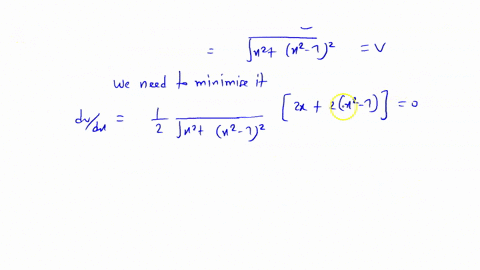 = √x²+ (x²-7)² = V
We need to minimise it
dv/dx = 1/2 1/√x²+ (x²-7)² [2x + 2(x²-7)] = 0